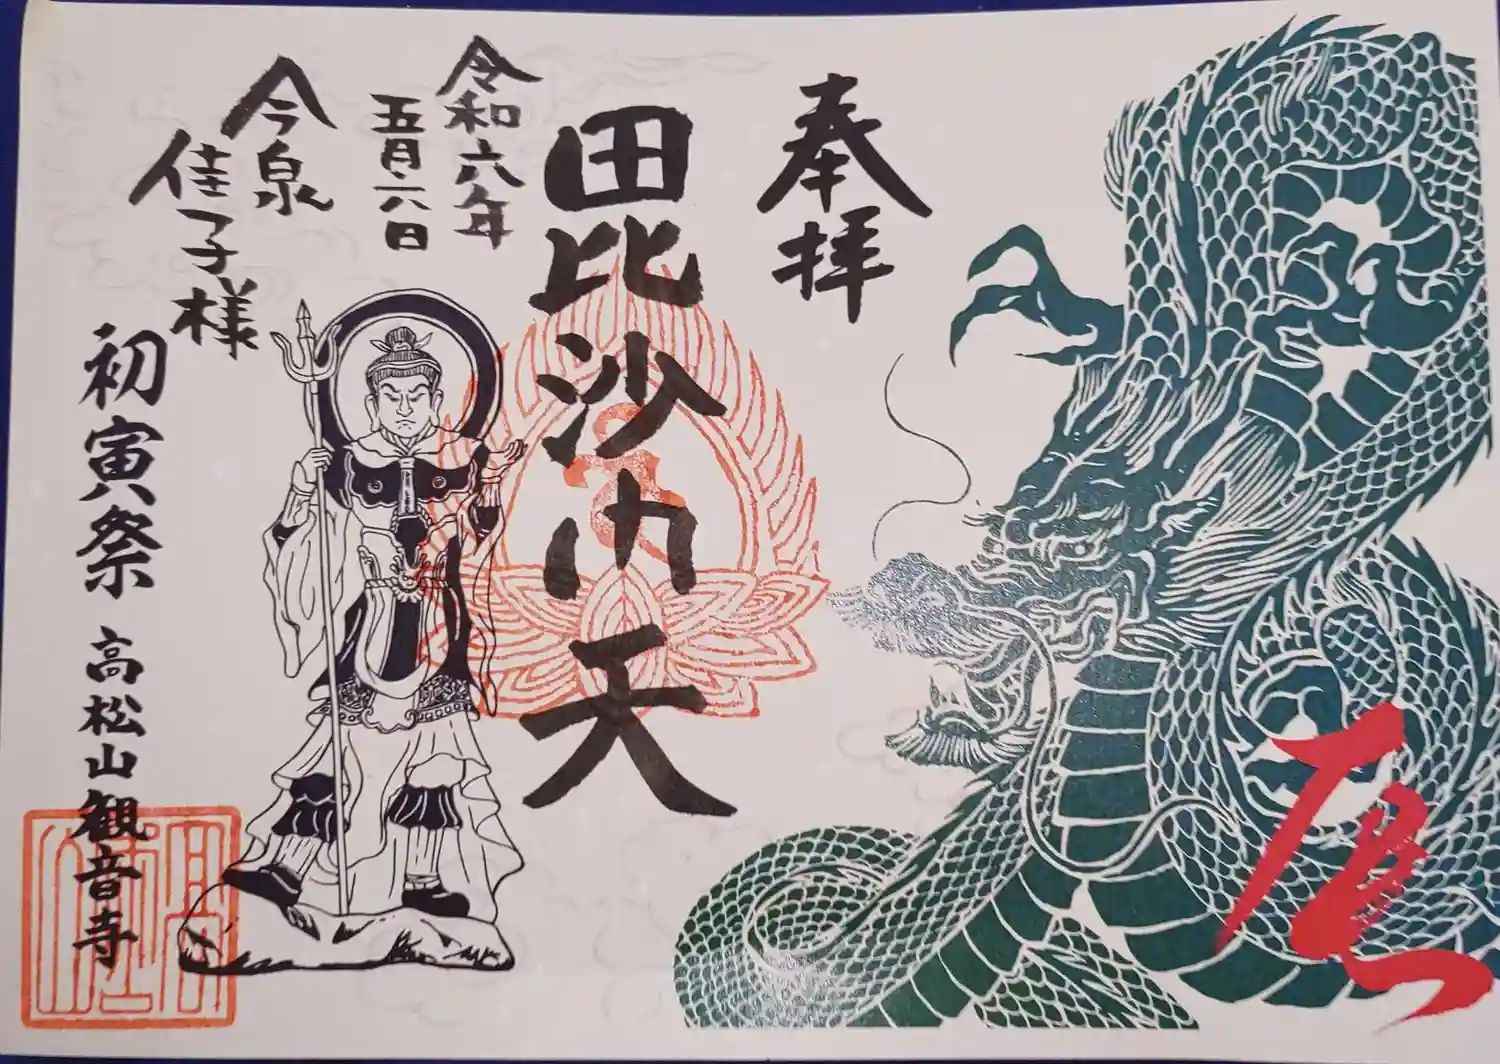 奉拝
毘沙門天
令和六年
五月六日
今泉
佳子様
初寅祭 高松山観音寺